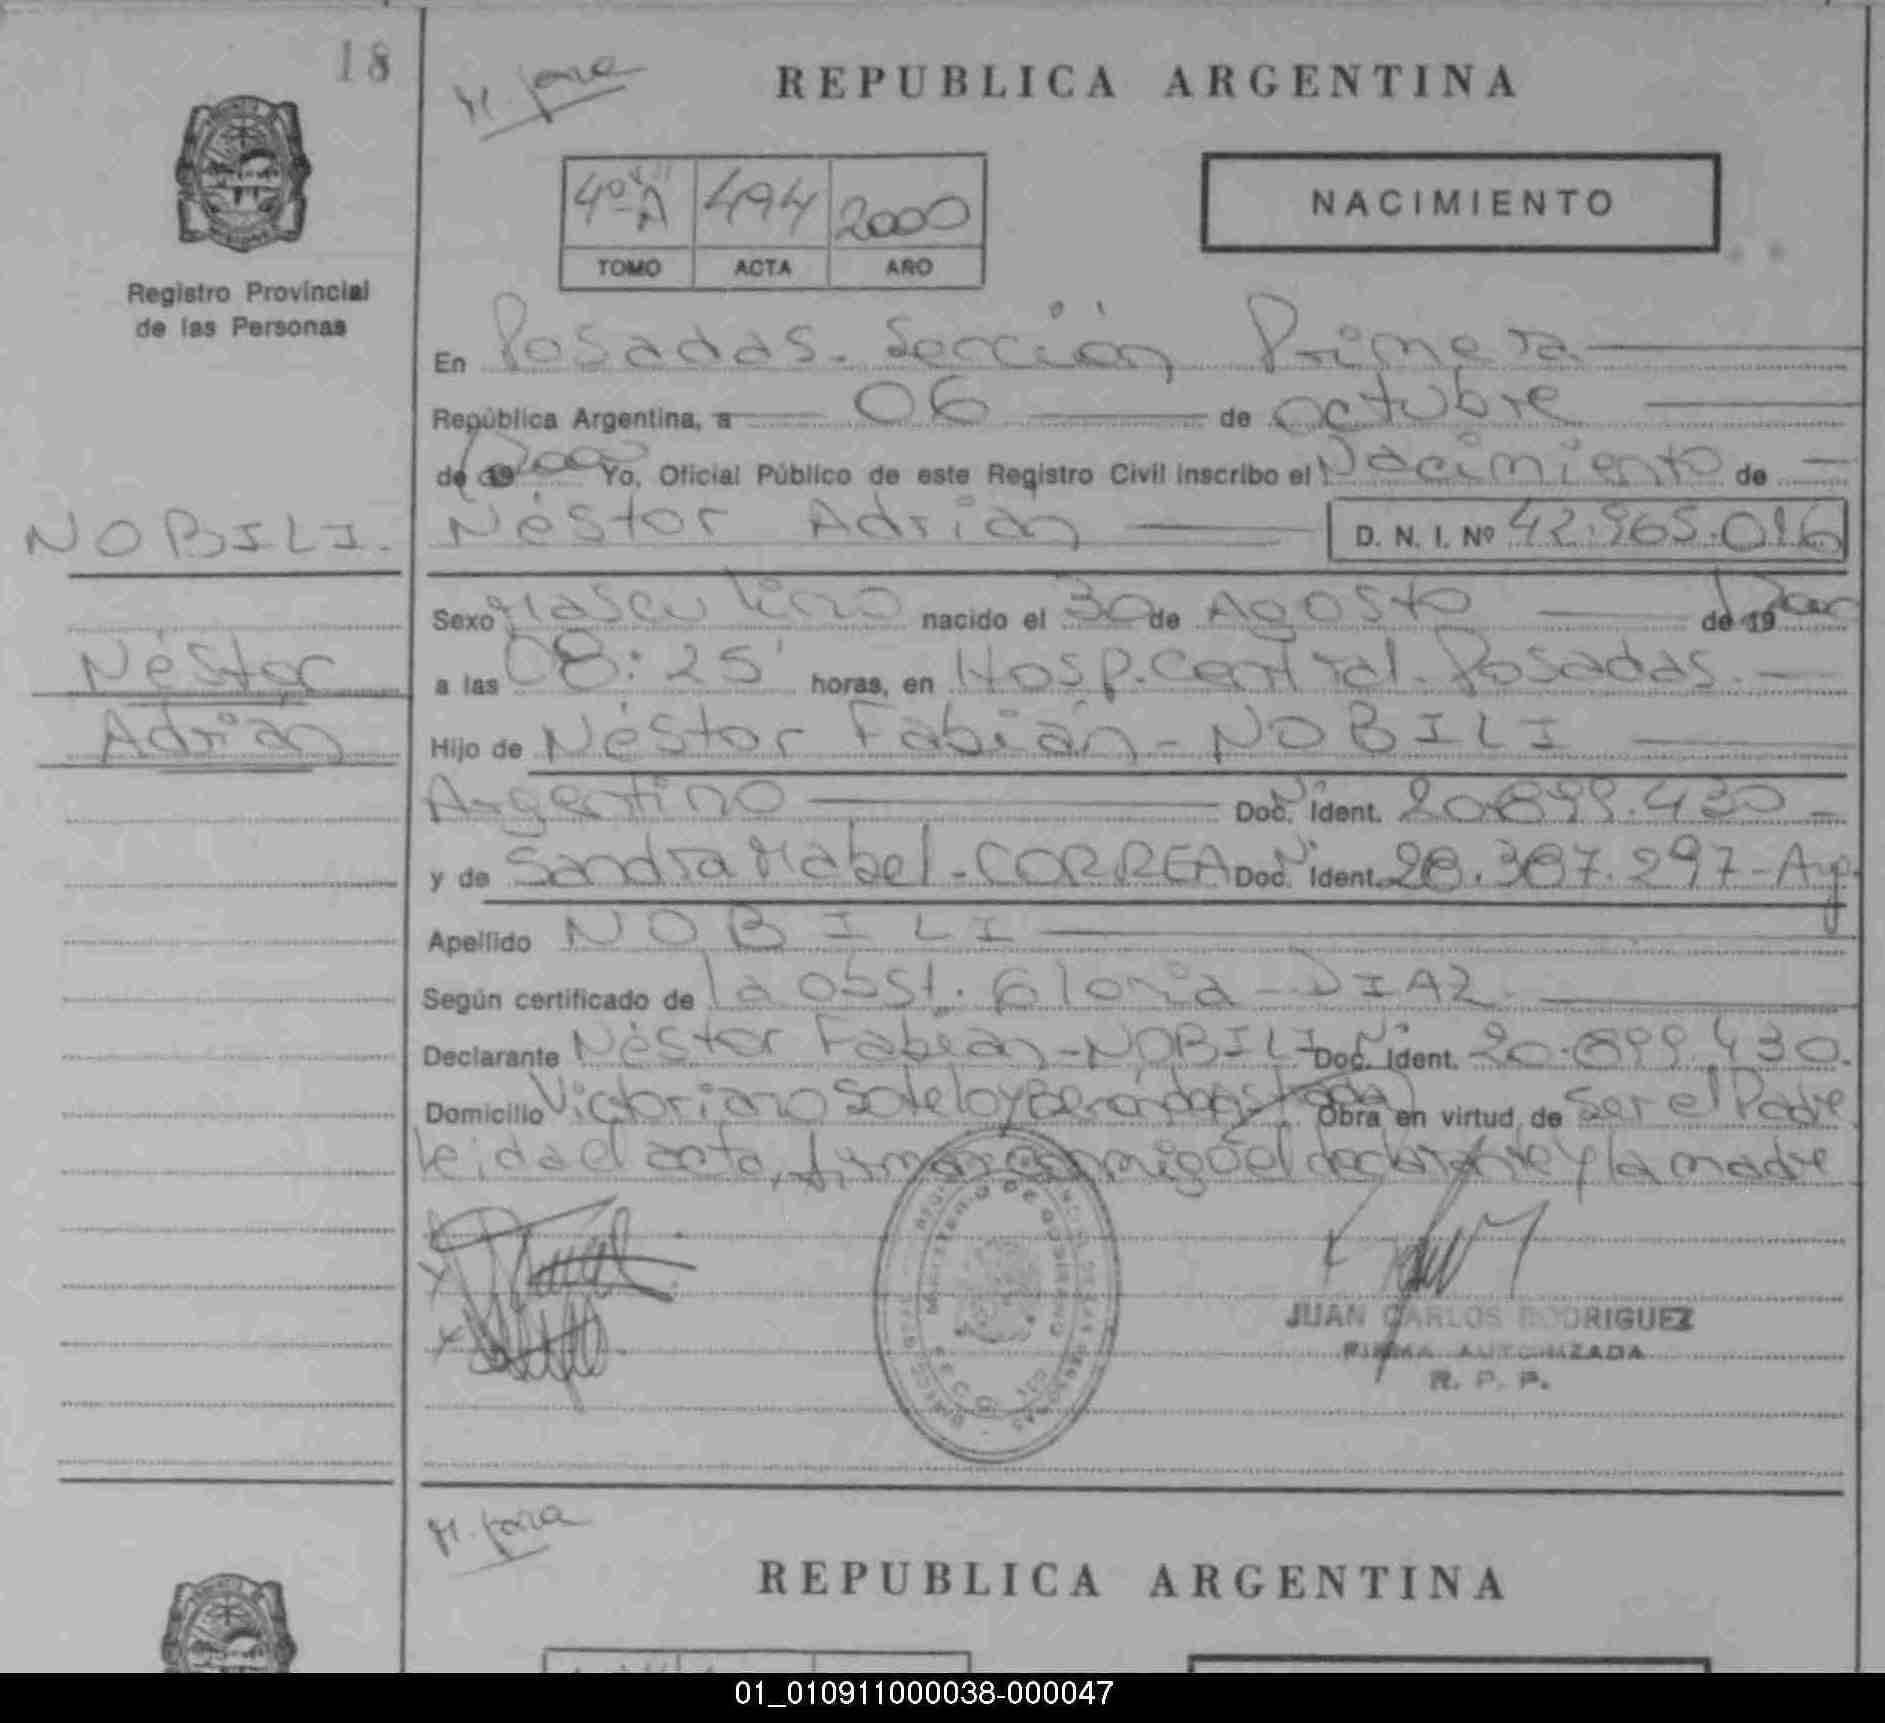 18
M. Jara
REPUBLICA ARGENTINA
4º A 494 2000
TOMO ACTA AÑO
NACIMIENTO
Registro Provincial
de las Personas
En Posadas. Sección Primera
República Argentina, a 06 de octubre
de 19 2000 Yo, Oficial Público de este Registro Civil inscribo el Nacimiento de
NOBILI.
Néstor Adrián D. N. I. Nº 42.965.016
Sexo Masculino nacido el 30 de Agosto de 19 2000
Néstor
a las 08:25' horas, en Hosp. Central. Posadas.
Adrián
Hijo de Néstor Fabián - NOBILI
Argentino Doc. Nº Ident. 20.899.430
y de Sandra Mabel - CORREA Doc. Nº Ident. 28.387.297 - Arg.
Apellido NOBILI
Según certificado de la obst. Gloria - DIAZ
Declarante Néstor Fabián - NOBILI Doc. Nº Ident. 20.899.430.
Domicilio Victoriano Sotelo y Obra en virtud de ser el Padre
leida el acta, firman conmigo el declarante y la madre
MINISTERIO DE GOBIERNO
JUAN CARLOS RODRIGUEZ
FIRMA AUTORIZADA
R. P. P.
M. Jara
REPUBLICA ARGENTINA
01_010911000038-000047